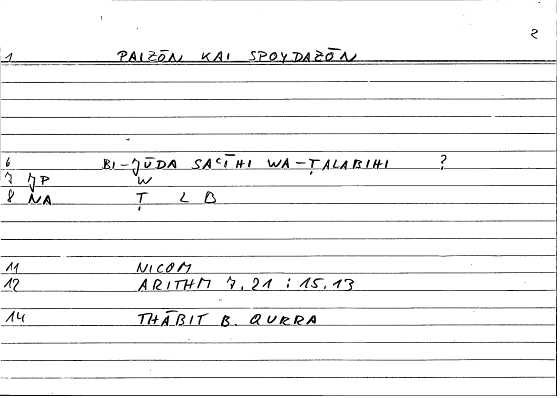 2
1 PAIZŌN KAI SPOYDAZŌN
6 BI-JŪDA SAʿĪHI WA-ṬALABIHI ?
7 JP W
8 NA Ṭ L B
11 NICOM
12 ARITHM 7.21 : 15.13
14 THĀBIT B. QURRA